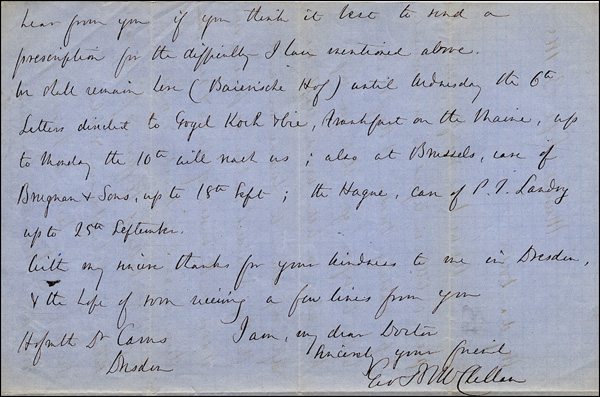 hear from you if you think it best to send a
prescription for the difficulty I have mentioned above.
We shall remain here (Baierische Hof) until Wednesday the 6th
Letters directed to Gogel Koch & Cie, Frankfurt on the Maine, up
to Monday the 10th will reach us; also at Brussels, care of
Brugman & Sons, up to 18th Sept; the Hague, care of P. I. Landry
up to 25th September.
With my sincere thanks for your kindness to me in Dresden,
& the hope of soon receiving a few lines from you
Hofrath Dr Carus I am, my dear Doctor
Dresden Sincerely your friend
Geo B McClellan